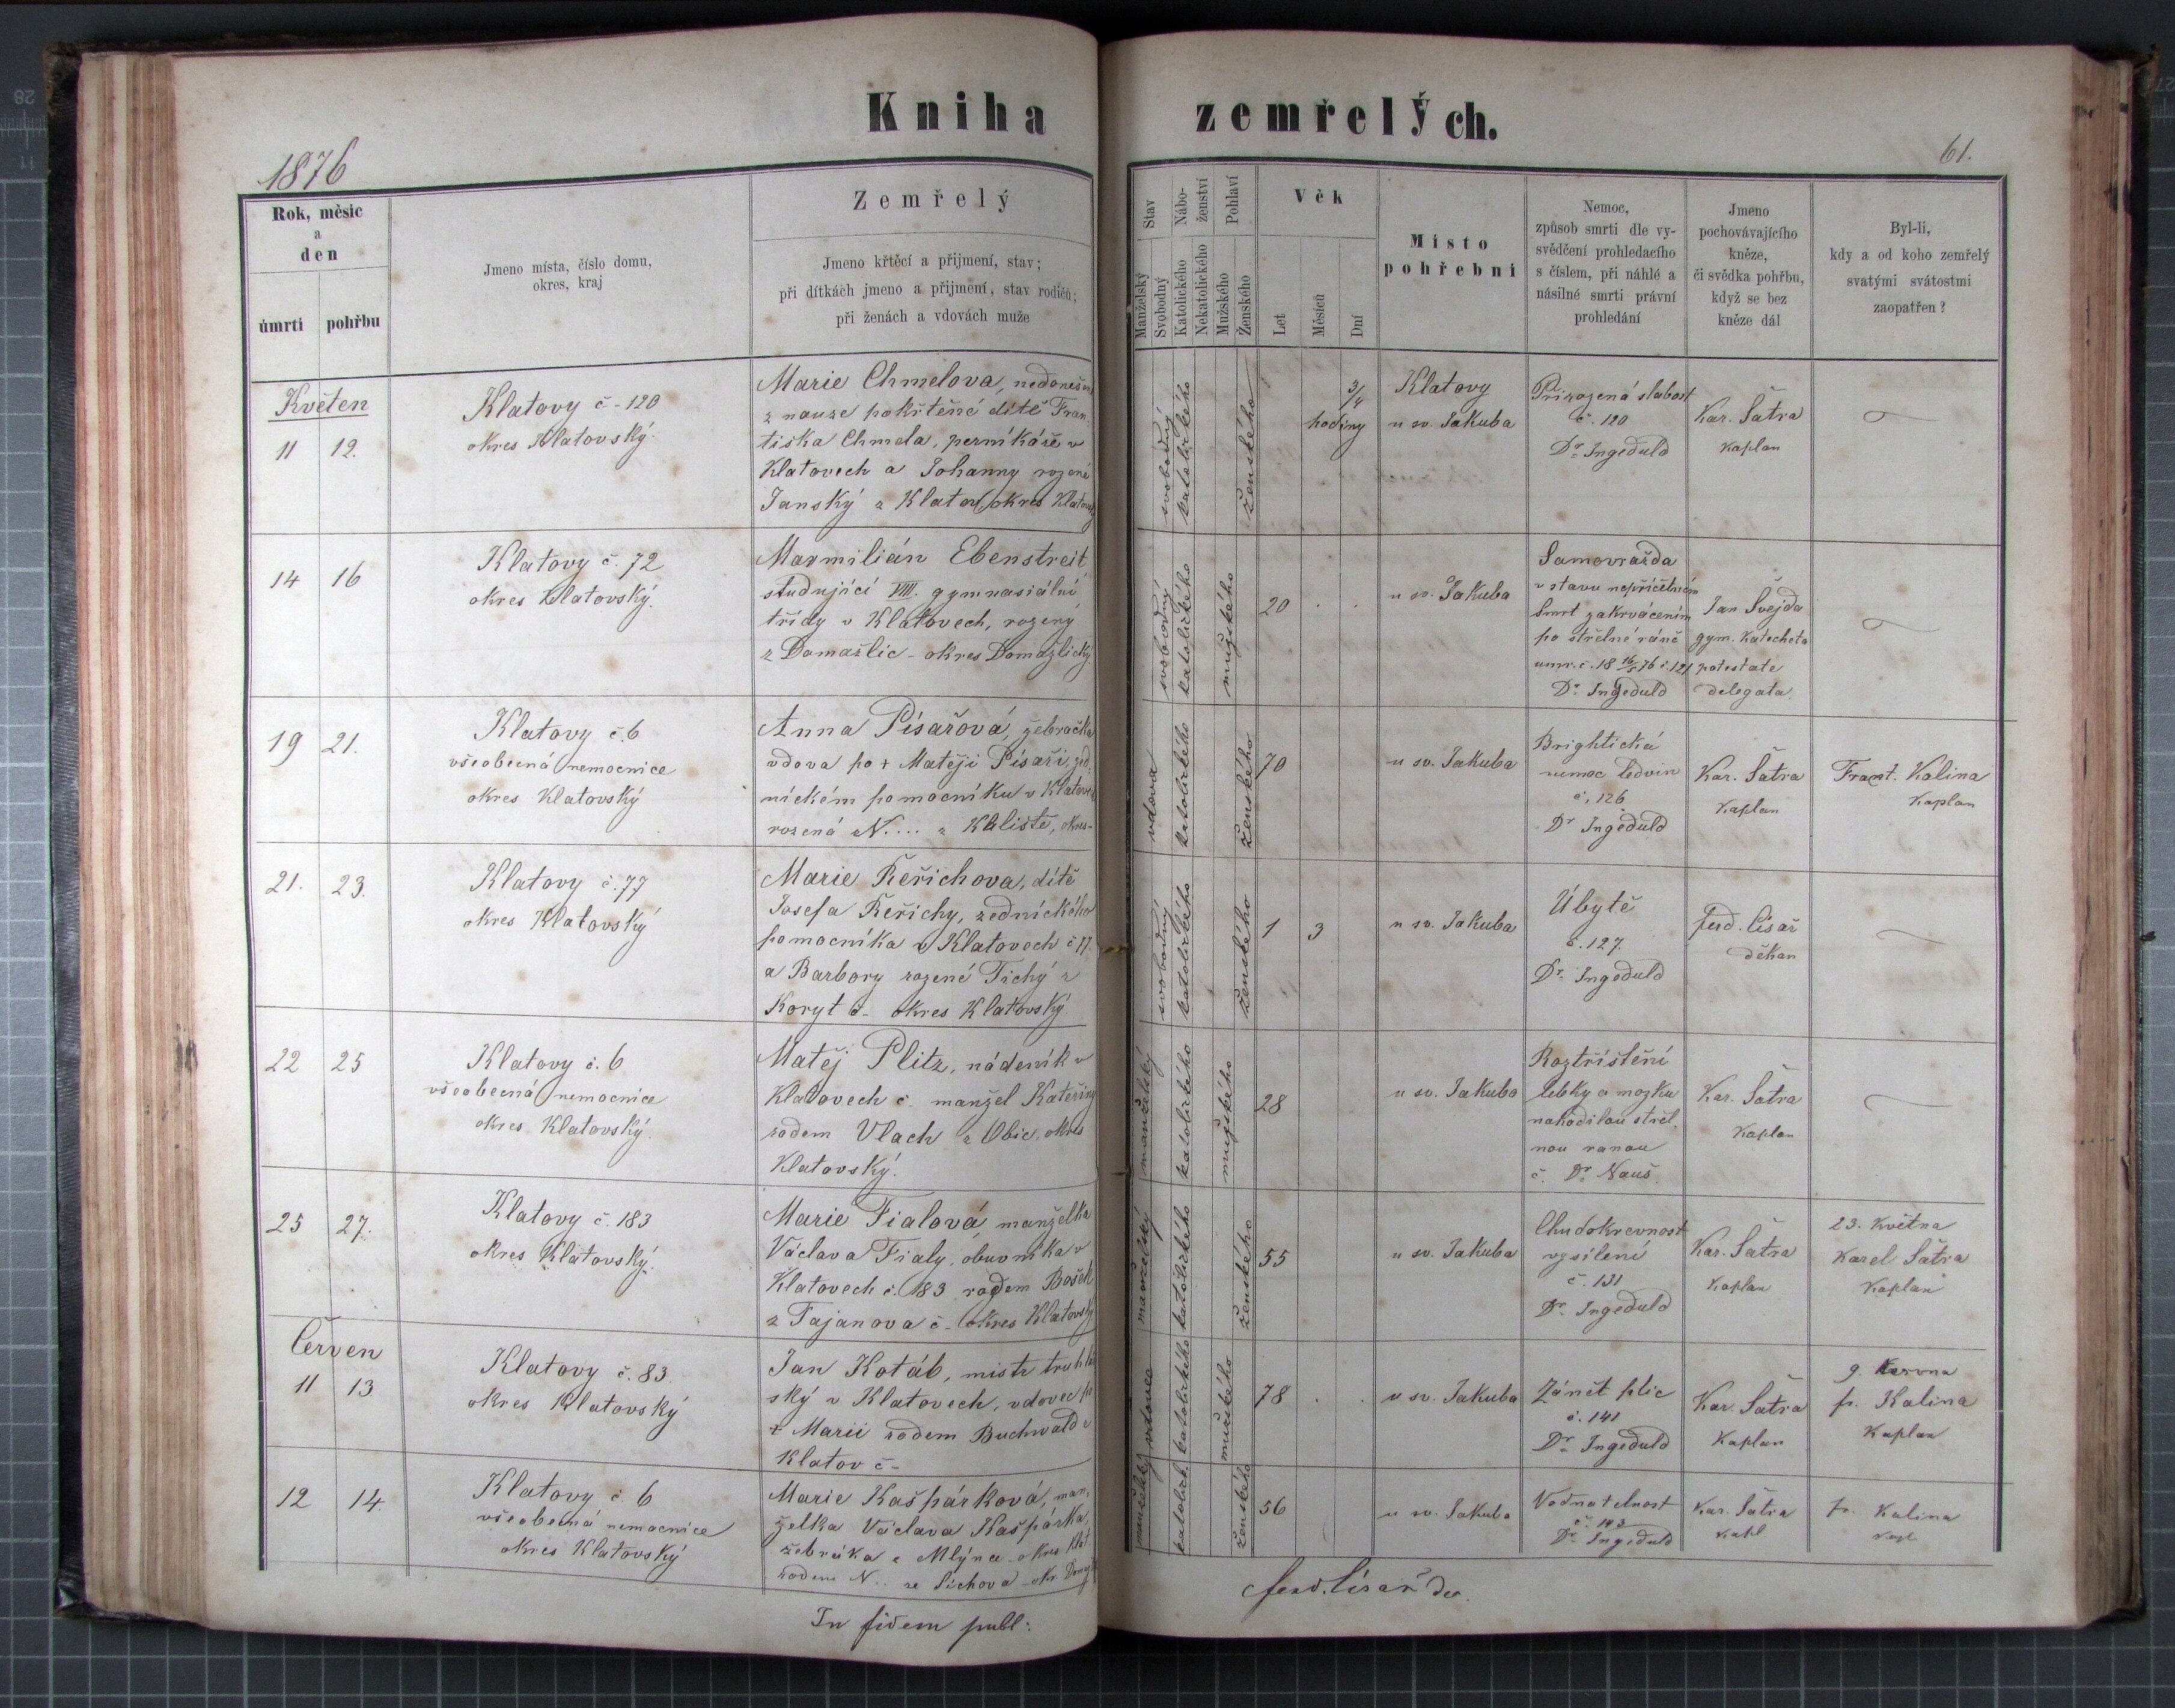 Kniha zemřelých.
1876
61.
Rok, měsíc
a
den
úmrtí
pohřbu
Jmeno místa, číslo domu,
okres, kraj
Zemřelý
Jmeno křtěcí a přijmení, stav;
při dítkách jmeno a přijmení, stav rodičů;
při ženách a vdovách muže
Stav
Manželský
Svobodný
Nábo-
ženství
Katolického
Nekatolického
Pohlaví
Mužského
Ženského
Věk
Let
Měsíců
Dní
Místo
pohřební
Nemoc,
způsob smrti dle vy-
svědčení prohledacího
s číslem, při náhlé a
násilné smrti právní
prohledání
Jmeno
pochovávajícího
kněze,
či svědka pohřbu,
když se bez
kněze dál
Byl-li,
kdy a od koho zemřelý
svatými svátostmi
zaopatřen?
Květen
11 12.
Klatovy č - 120
okres Klatovský.
Marie Chmelova, nedonešen
z nouze pokřtěné dítě Fran
tiska Chmela, perníkáře v
Klatovech a Johanny rozené
Janský z Klatov, okres Klatovský
svobodný
katolického
ženského
3/4
hodiny
Klatovy
u sv. Jakuba
Přirozená slabost
č. 120
Dr. Ingeduld
Kar. Šatra
Kaplan
14 16
Klatovy č. 72
okres Klatovský.
Maxmilián Ebenstreit
studující VIII. gymnasiální
třídy v Klatovech, rozený
z Domažlic - okres Domažlický.
svobodný
katolického
mužského
20
u sv. Jakuba
Samovražda
v stavu nepříčetném
Smrt zakrvácením
po střelné ráně
č. 121
Dr. Ingeduld
Jan Švejda
gym. Katecheta
potestate
delegata.
19 21.
Klatovy č. 6
všeobecná nemocnice
okres Klatovský
Anna Písařová, žebračka
vdova po + Matěji Písaři, zed
nickém pomocníku v Klatovech
rozená N.... z Kaliště, okres-
vdova
katolického
ženského
70
u sv. Jakuba
Brightická
nemoc ledvin
č. 126
Dr Ingeduld
Kar. Šatra
Kaplan
Frant. Kalina
Kaplan
21. 23.
Klatovy č. 77
okres Klatovský
Marie Řeřichova, dítě
Josefa Řeřichy, zednického
pomocníka v Klatovech č 77.
a Barbory rozené Tichý z
Koryt č - okres Klatovský
svobodný
katolického
ženského
1 3
u sv. Jakuba
Úbytě
č. 127.
Dr. Ingeduld
Ferd. Císař
děkan
22 25
Klatovy č. 6
všeobecná nemocnice
okres Klatovský.
Matěj Plitz, nádeník v
Klatovech č. manžel Kateřiny
rodem Vlach z Obic, okres
Klatovský.
manželský
katolického
mužského
28
u sv. Jakuba
Roztříštění
lebky a mozku
nahodilou střel.
nou ranou
č. Dr. Nauš.
Kar. Šatra
Kaplan
25 27.
Klatovy č. 183
okres Klatovský.
Marie Fialová manželka
Václava Fialy, obuvníka v
Klatovech č. 183 rodem Bošek
z Tajanova č - okres Klatovský.
manželský
katolického
ženského
55
u sv. Jakuba
Chudokrevnost
vysílení
č. 131
Dr. Ingeduld
Kar. Šatra
Kaplan
23. Května
Karel Šatra
Kaplan
Červen
11 13
Klatovy č. 83.
okres Klatovský
Jan Kotáb, mistr truhlář
ský v Klatovech, vdovec po
+ Marii rodem Buchwald z
Klatov č -
vdovec
katolického
mužského
78
u sv. Jakuba
Zánět plic
č. 141
Dr. Ingeduld
Kar. Šatra
Kaplan
9 června
fr. Kalina
Kaplan
12 14.
Klatovy č. 6
všeobecná nemocnice
okres Klatovský
Marie Kašpárková, man-
želka Václava Kašpárka,
žebráka z Mlýnce - okres Klat.
rodem N... ze Síchova - okr.
manželský
katolick.
ženského
56
u sv. Jakuba
Vodnatelnost
č. 143
Dr. Ingeduld
Kar. Šatra
kapl
fr. Kalina
kapl
In fidem publ:
ferd. Císař